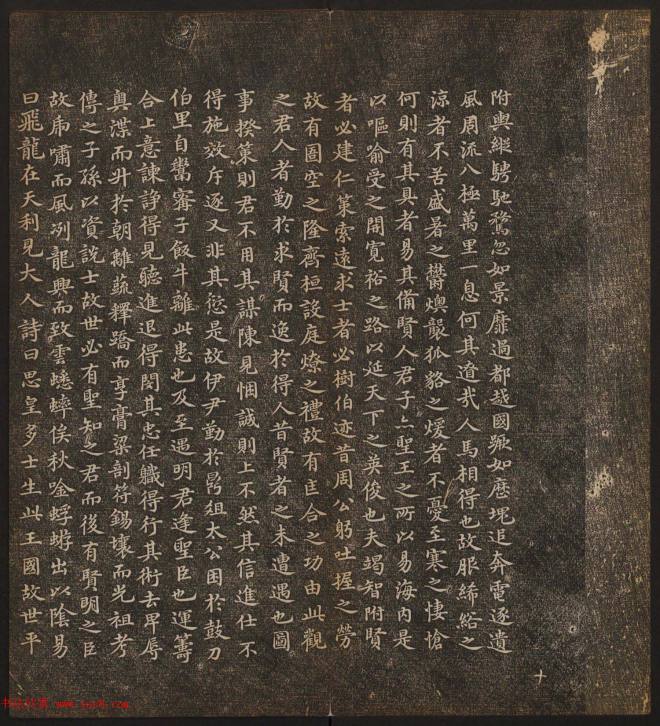 附輿縱騁馳騖忽如景靡過都越國蹶如歷塊追奔電逐遺
風周流八極萬里一息何其遼哉人馬相得也故服絺綌之
涼者不苦盛暑之鬱燠襲狐貉之煖者不憂至寒之悽愴
何則有其具者易其備賢人君子亦聖王之所以易海內是
以嘔喻受之開寬裕之路以延天下之英俊也夫竭智附賢
者必建仁策索遠求士者必樹伯迹昔周公躬吐握之勞
故有圄空之隆齊桓設庭燎之禮故有匡合之功由此觀
之君人者勤於求賢而逸於得人昔賢者之未遭遇也圖
事揆策則君不用其謀陳見悃誠則上不然其信進仕不
得施效斥逐又非其愆是故伊尹勤於鼎俎太公困於鼓刀
伯里自鬻甯子飯牛離此患也及至遇明君逢聖臣也運籌
合上意諫諍得見聽進退得関其忠任職得行其術去卑辱
奧渫而升於朝離蔬釋蹻而享膏粱剖符錫壤而光祖考
傳之子孫以資說士故世必有聖知之君而後有賢明之臣
故虎嘯而風冽龍興而致雲蟋蟀俟秋唫蜉蝣出以陰易
曰飛龍在天利見大人詩曰思皇多士生此王國故世平
十